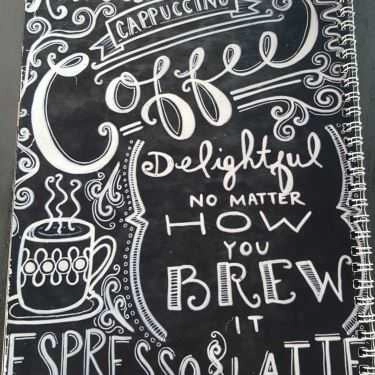 CAPPUCCINO
Coffee
Delightful
NO MATTER
HOW
YOU
BREW
IT
ESPRESSO & LATTE